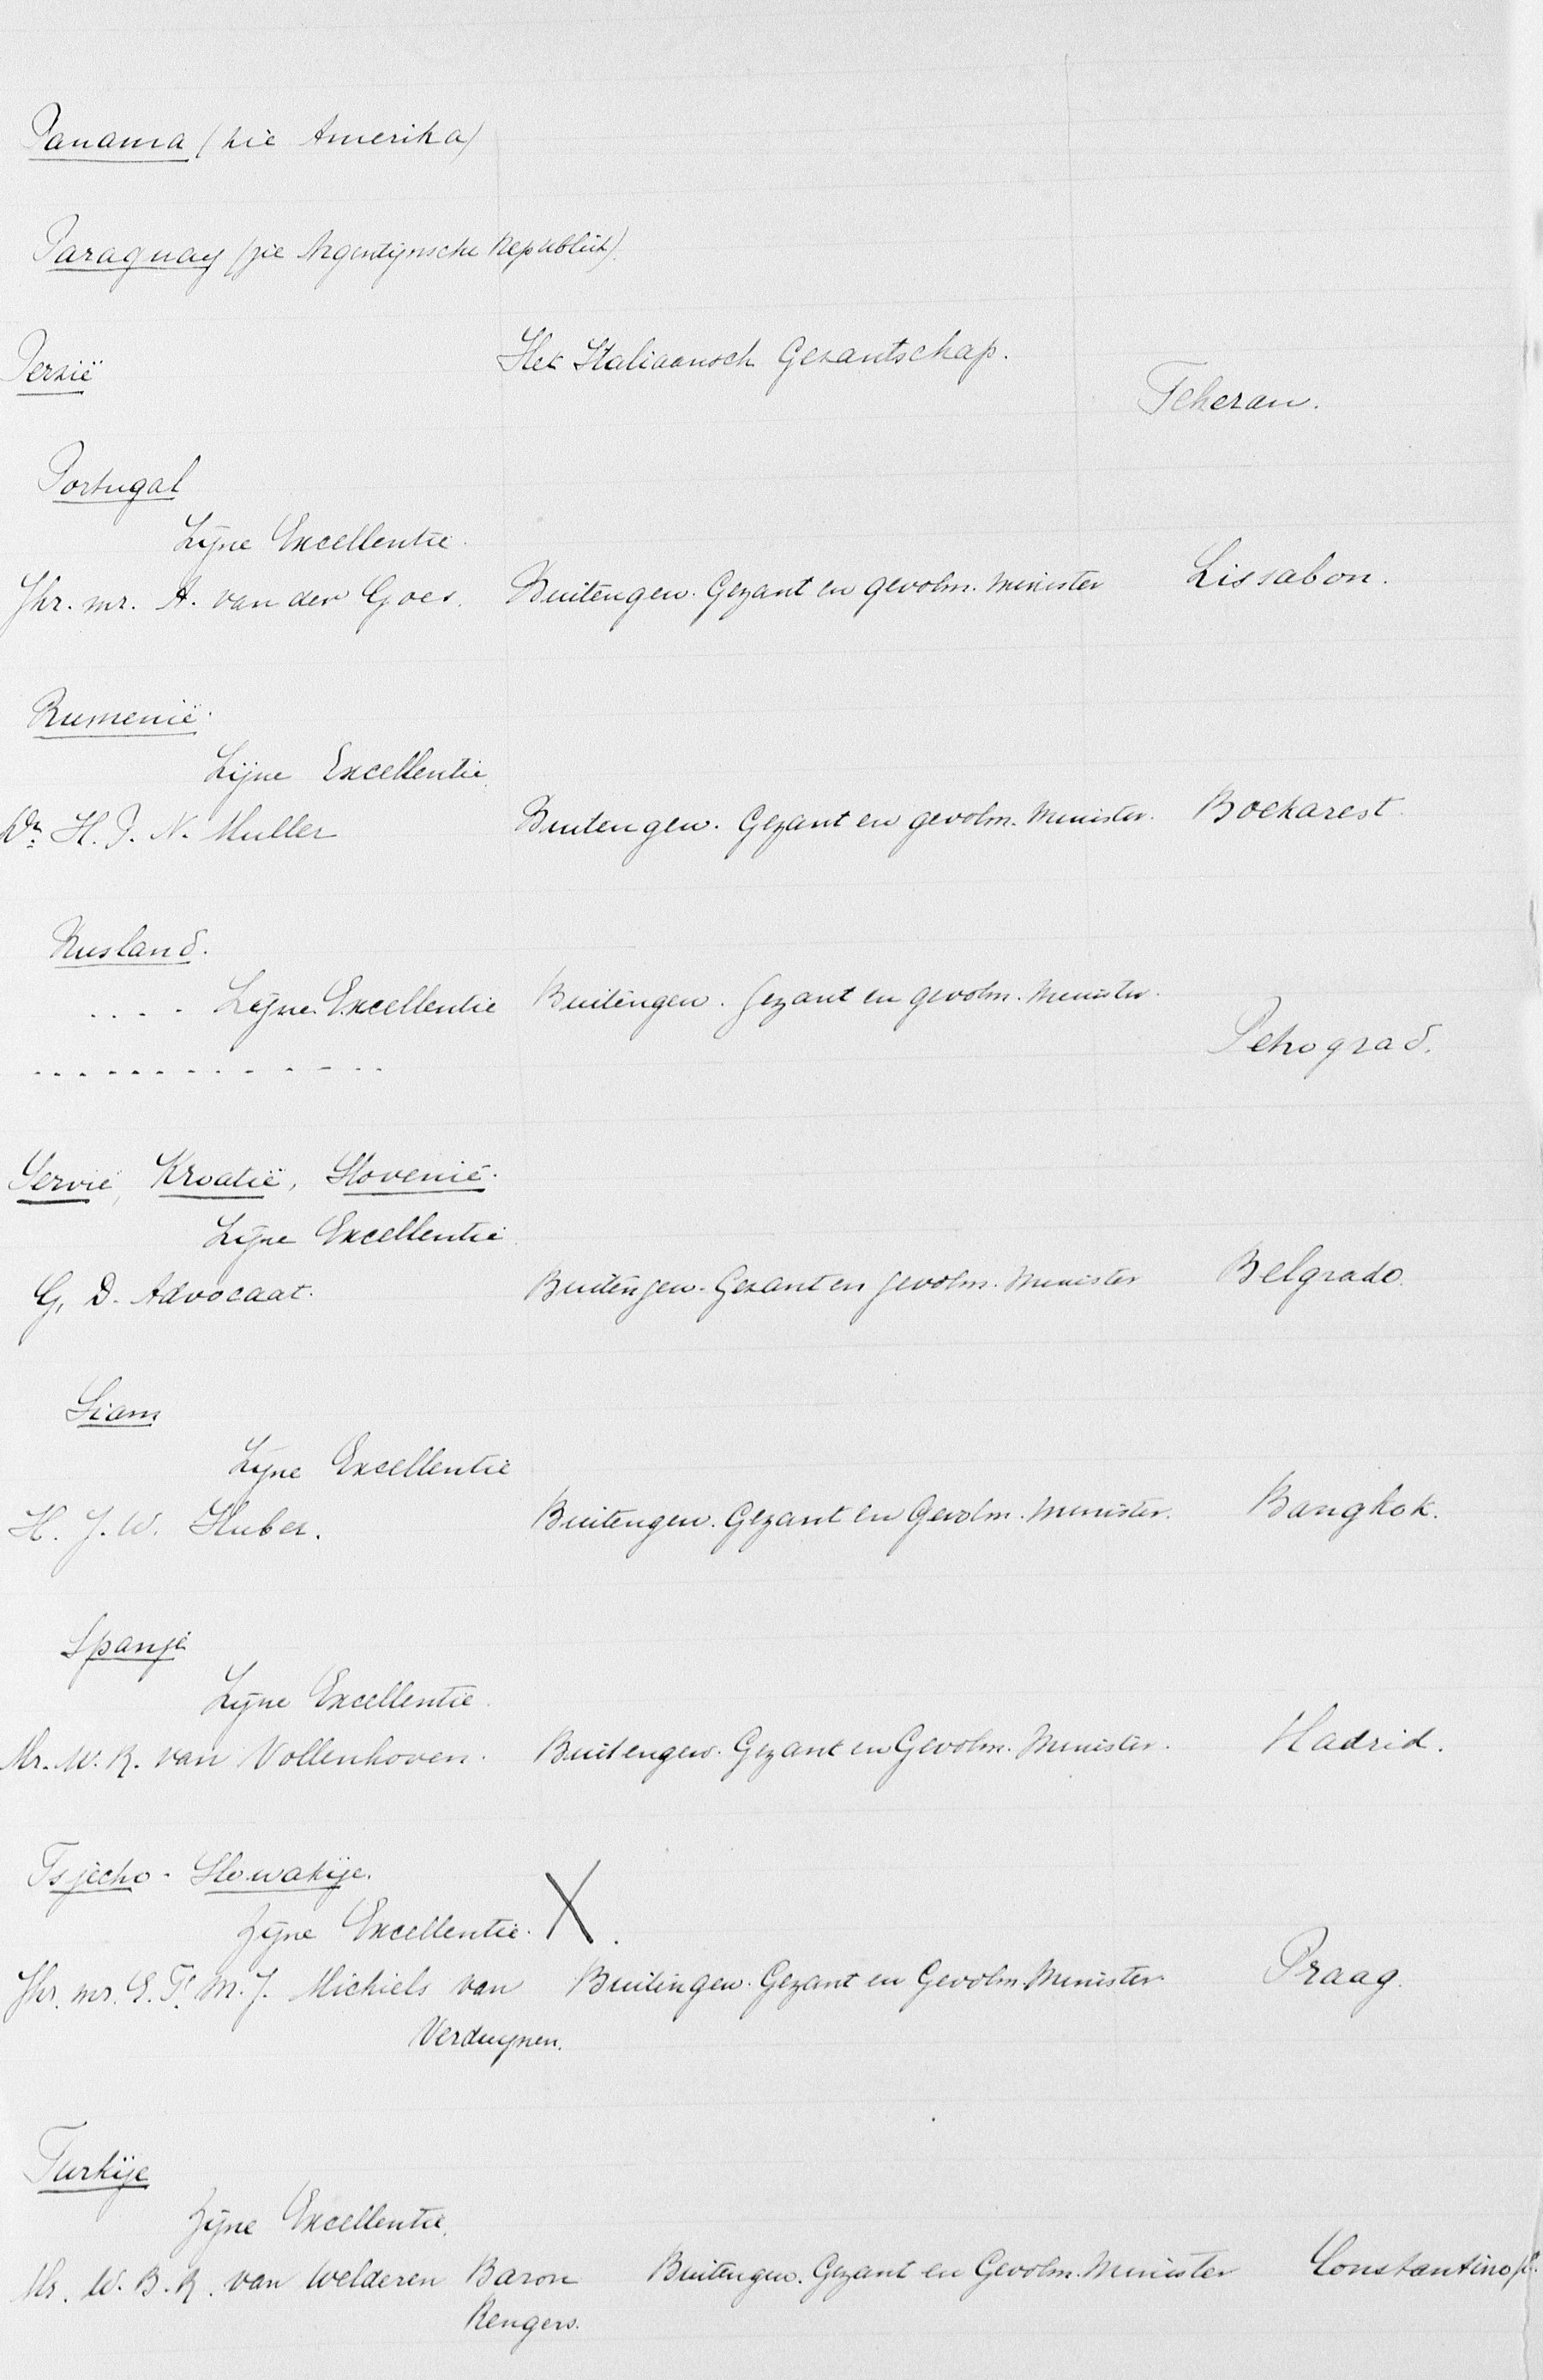 Panama (zie Amerika)
Paraguay (zie Argentijnsche Republiek).
Perzië
Het Italiaansch Gezantschap.
Teheran.
Portugal
Zijne Excellentie.
Jhr. mr. A. van der Goes. Buitengew. Gezant en gevolm. Minister Lissabon.
Rumenië.
Zijne Excellentie.
Dr. H. P. N. Muller Buitengew. Gezant en gevolm. Minister. Boekarest.
Rusland.
.... Zijne Excellentie Buitengew. Gezant en gevolm. Minister.
............. Petrograd.
Servië, Kroatië, Slovenië.
Zijne Excellentie
G. D. Advocaat. Buitengew. Gezant en gevolm. Minister Belgrado.
Siam
Zijne Excellentie
H. J. W. Huber. Buitengew. Gezant en Gevolm. Minister. Bangkok.
Spanje
Zijne Excellentie.
Mr. W. R. van Vollenhoven. Buitengew. Gezant en Gevolm. Minister. Madrid.
Tsjecho-Slowakije.
Zijne Excellentie. X.
Jhr. mr. E. F. M. J. Michiels van Buitengew. Gezant en Gevolm. Minister Praag.
Verduynen.
Turkije
Zijne Excellentie.
Mr. W. B. R. van Welderen Baron Buitengew. Gezant en Gevolm. Minister Constantinopel.
Rengers.